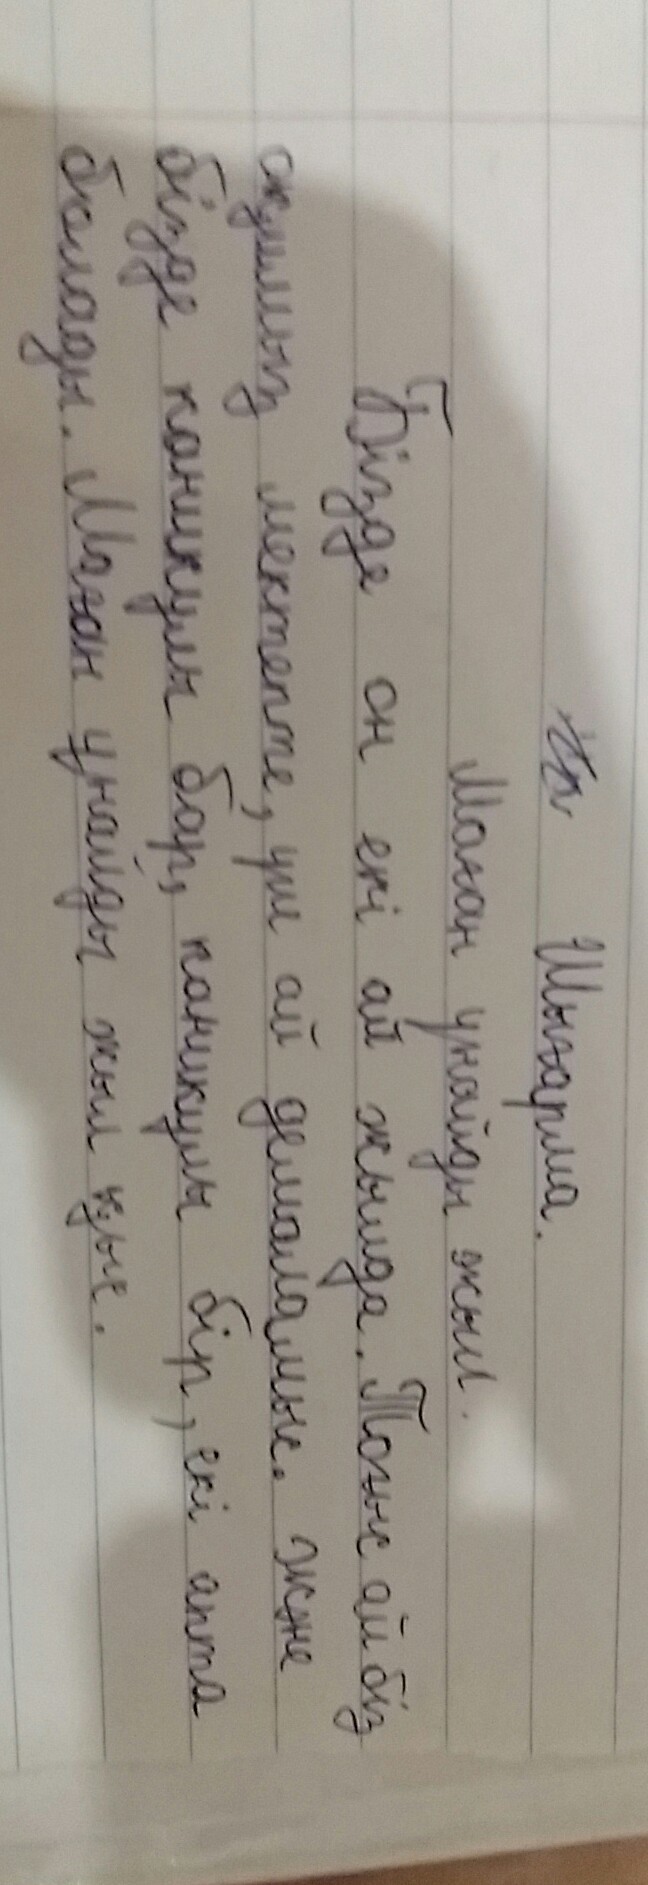 Шығарма.
Маған ұнайды жыл.
Бізде он екі ай жылда. Тоғыс ай біз
оқимыз мектепте, үш ай демаламыс. және
бізде каникулы бар, каникулы бір, екі апта
болады. Маған ұнайды жыл